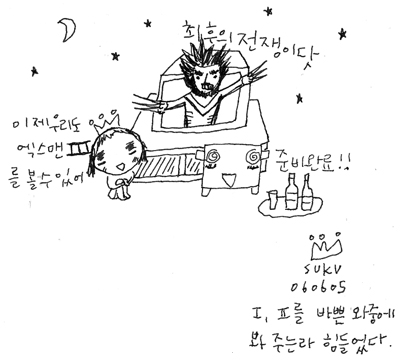 최후의 전쟁이닷
이제 우리도
엑스맨
를 볼수있어
준비완료!!
SUKU
060605
I, 표를 바쁜 와중에
봐 주는라 힘들었다.